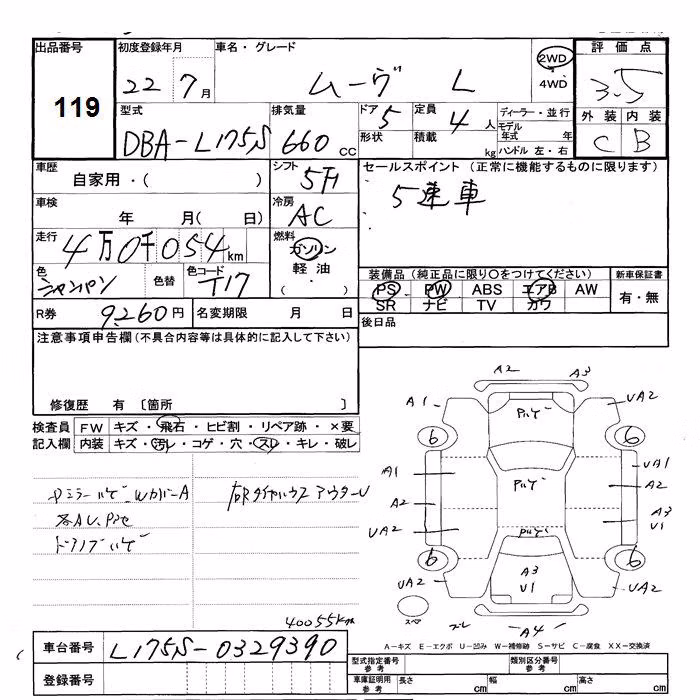 出品番号
119
初度登録年月
22年7月
車名・グレード
ムーヴ L
2WD
4WD
評価点
3.5
外装 内装
C B
型式
DBA-L175S
排気量
660 cc
ドア 5
形状
定員 4人
積載 kg
ディーラー・並行
モデル年式 年
ハンドル 左・右
車歴
自家用・( )
シフト
5F
セールスポイント (正常に機能するものに限ります)
5速車
車検
年 月( 日)
冷房
AC
走行
4万0千054km
燃料
ガソリン
軽油
( ・ )
色
シャンパン
色替
色コード
T17
装備品 (純正品に限り○をつけてください)
PS PW ABS エアB AW
SR ナビ TV カワ
新車保証書
有・無
R券 9,260円
名変期限 月 日
後日品
注意事項申告欄 (不具合内容等は具体的に記入して下さい)
修復歴 有 〔箇所 〕
検査員記入欄
FW キズ・飛石・ヒビ割・リペア跡・×要
内装 キズ・汚レ・コゲ・穴・スレ・キレ・破レ
Pミラーハゲ WカバーA
各AU、P凹
ドアノブハゲ
40055km
A2 A3
A1 ハゲ UA2
6 6
A1 ハゲ UA1
A2 A2
UA2 ハゲ A3 U1
6 6
UA2 A3 U1 UA2
スペア
ズレ A4
A-キズ E-エクボ U-凹み W-補修跡 S-サビ C-腐食 XX-交換済
車台番号 L175S-0329390
登録番号
型式指定番号 参考
類別区分番号 参考
車庫証明用 参考
長さ cm 幅 cm 高さ cm